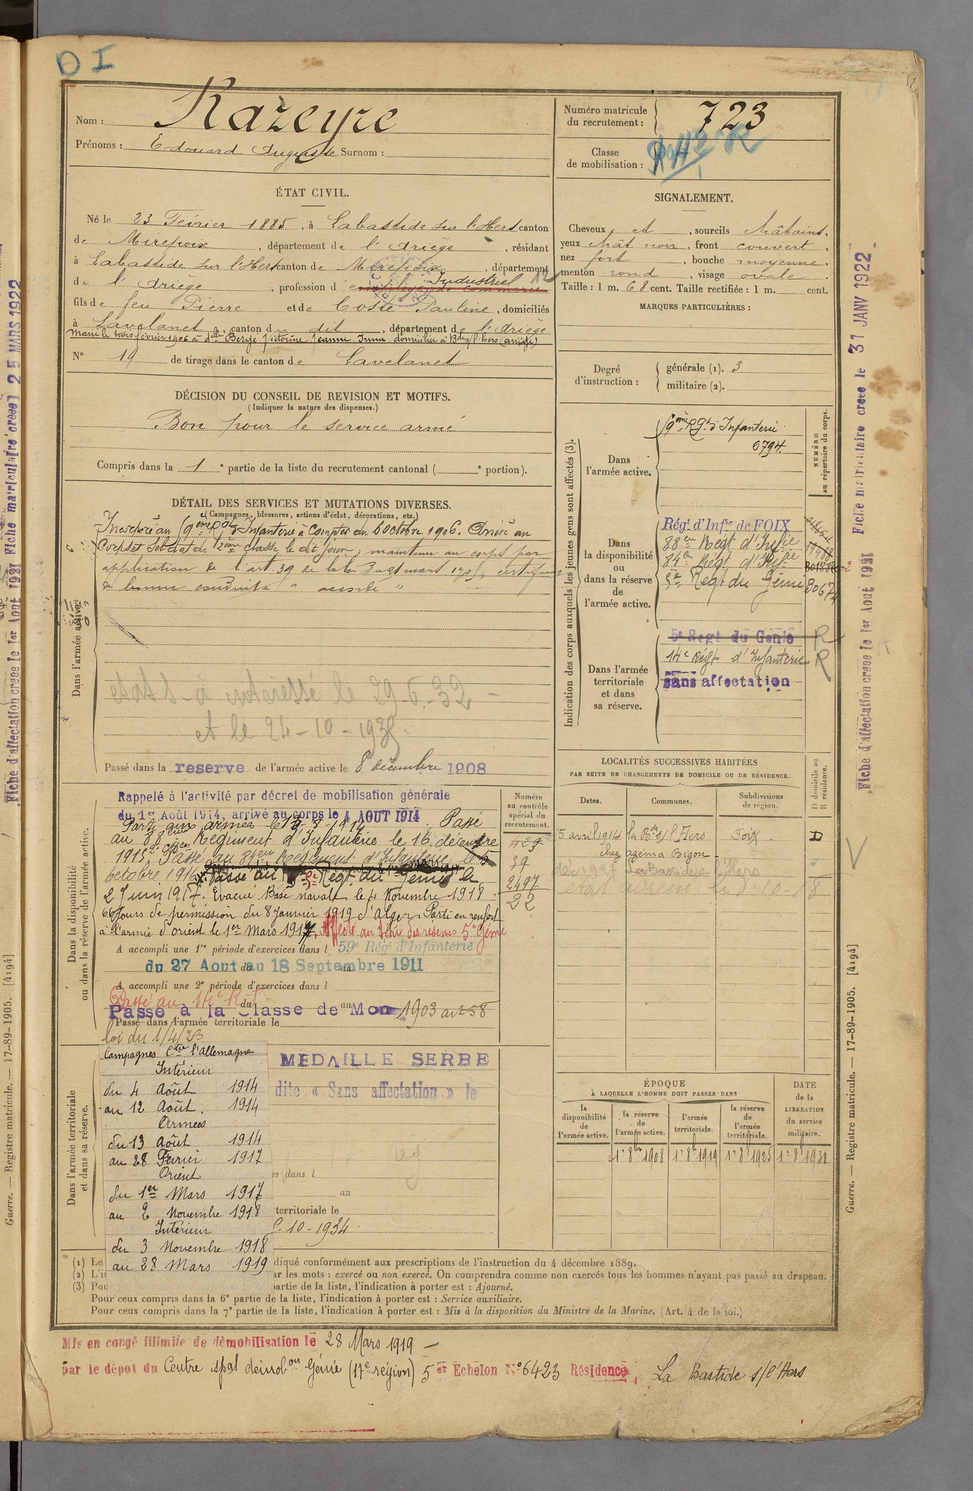 D I
Nom : Razeyre
Prénoms : Edouard Auguste Surnom :
Numéro matricule du recrutement : 723
Classe de mobilisation :
ÉTAT CIVIL.
Né le 23 Février 1885, à Labastide sur l'Hers canton
de Mirepoix, département de l'Ariège, résidant
à Labastide sur l'Hers canton de Mirepoix, département
de l'Ariège, profession d Industriel
fils de feu Pierre et de Coste Pauline, domiciliés
à Lavelanet, canton du dit, département de l'Ariège
N° 19 de tirage dans le canton de Lavelanet
SIGNALEMENT.
Cheveux et, sourcils châtains,
yeux chât noir, front couvert,
nez fort, bouche moyenne,
menton rond, visage ovale
Taille : 1 m. 61 cent. Taille rectifiée : 1 m. cent.
MARQUES PARTICULIÈRES :
Degré d'instruction : générale (1). 3
militaire (2).
DÉCISION DU CONSEIL DE REVISION ET MOTIFS.
(Indiquer la nature des dispenses.)
Bon pour le service armé
Compris dans la 1e partie de la liste du recrutement cantonal ( e portion).
DÉTAIL DES SERVICES ET MUTATIONS DIVERSES.
(Campagnes, blessures, actions d'éclat, décorations, etc.)
Infanterie à compter du 6 Octobre 1906. Arrivé au
Corps et soldat de 2ème classe le dit jour, maintenu au corps par
application de l'art 39 de la loi du 21 mars 1905, certificat
de bonne conduite accordé
Dans l'armée active.
et le 24-10-1935
Passé dans la reserve de l'armée active le 8 décembre 1908
Indication des corps auxquels les jeunes gens sont affectés (3).
NUMÉRO au répertoire du corps.
Dans l'armée active.
Infanterie
6794
Dans la disponibilité ou dans la réserve de l'armée active.
Rég. d'Infie de FOIX
88ème Régt d'Infrie
84e Régt d'Infie
5e Régt du Génie
Dans l'armée territoriale et dans sa réserve.
5e Regt du Genie R
14e Régt d'Infanterie R
sans affectation
Dans la disponibilité ou dans la réserve de l'armée active.
Rappelé à l'activité par décret de mobilisation générale
du 1er Août 1914, arrivé au corps le 4 AOUT 1914
Parti aux armées le 13-8-1914. Passé
au 88ème Régiment d'Infanterie le 16 décembre
1915. Passé au 84ème Régiment d'Infanterie le 5
octobre 1916. Passé au 5e Régt du Génie le
2 Juin 1917. Evacué Base navale le 4 Novembre 1918
Jours de permission du 8 Janvier 1919 d'Alger Parti en renfort
à l'armée d'orient le 1er Mars 1917.
A accompli une 1re période d'exercices dans l 59e Rég d'Infanterie
du 27 Aout au 18 Septembre 1911
A accompli une 2e période d'exercices dans l
Passé au 14e R.I.
Passé à la Classe de Mon 1903 art 58
Passé dans l'armée territoriale le
loi du 1/4/23
Numéro au contrôle spécial du recrutement.
39
2497
22
LOCALITÉS SUCCESSIVES HABITÉES
PAR SUITE DE CHANGEMENTS DE DOMICILE OU DE RÉSIDENCE.
Dates.
Communes.
Subdivisions de région.
D domicile ou R résidence.
5 avril 1914 la Bde s/ l'Hers Foix D
Dans l'armée territoriale et dans sa réserve.
Campagnes Ctre l'Allemagne
Intérieur
du 4 Août 1914
au 12 Août. 1914
Armées
du 13 Août 1914
au 28 Février 1917
Orient
du 1er Mars 1917
au 2 Novembre 1918
Intérieur
du 3 Novembre 1918
au 28 Mars 1919
MEDAILLE SERBE
dite « Sans affectation » le
es dans l
au
territoriale le
10-1934
ÉPOQUE
À LAQUELLE L'HOMME DOIT PASSER DANS
la disponibilité de l'armée active.
la réserve de l'armée active.
l'armée territoriale.
la réserve de l'armée territoriale.
DATE de la LIBÉRATION du service militaire.
1er 8bre 1908
1er 8bre 1919
(1) Le diqué conformément aux prescriptions de l'instruction du 4 décembre 1889.
(2) L'in r les mots : exercé ou non exercé. On comprendra comme non exercés tous les hommes n'ayant pas passé au drapeau.
(3) Pou partie de la liste, l'indication à porter est : Ajourné.
Pour ceux compris dans la 6e partie de la liste, l'indication à porter est : Service auxiliaire.
Pour ceux compris dans la 7e partie de la liste, l'indication à porter est : Mis à la disposition du Ministre de la Marine. (Art. 4 de la loi.)
Mis en congé illimité de démobilisation le 28 Mars 1919 —
par le dépot du Centre spal démobon Génie (17e région) 5er Échelon N° 6423 Résidence, La Bastide s/l'Hers
Guerre. — Registre matricule. — 17-89-1905. [4194]
Guerre. — Registre matricule. — 17-89-1905. [4194]
Fiche d'affectation creee le 1er Aout 1921 Fiche matriculaire creee le 25 MARS 1922
Fiche d'affectation creee le 1er Aout 1921 Fiche matriculaire creee le 31 JANV 1922